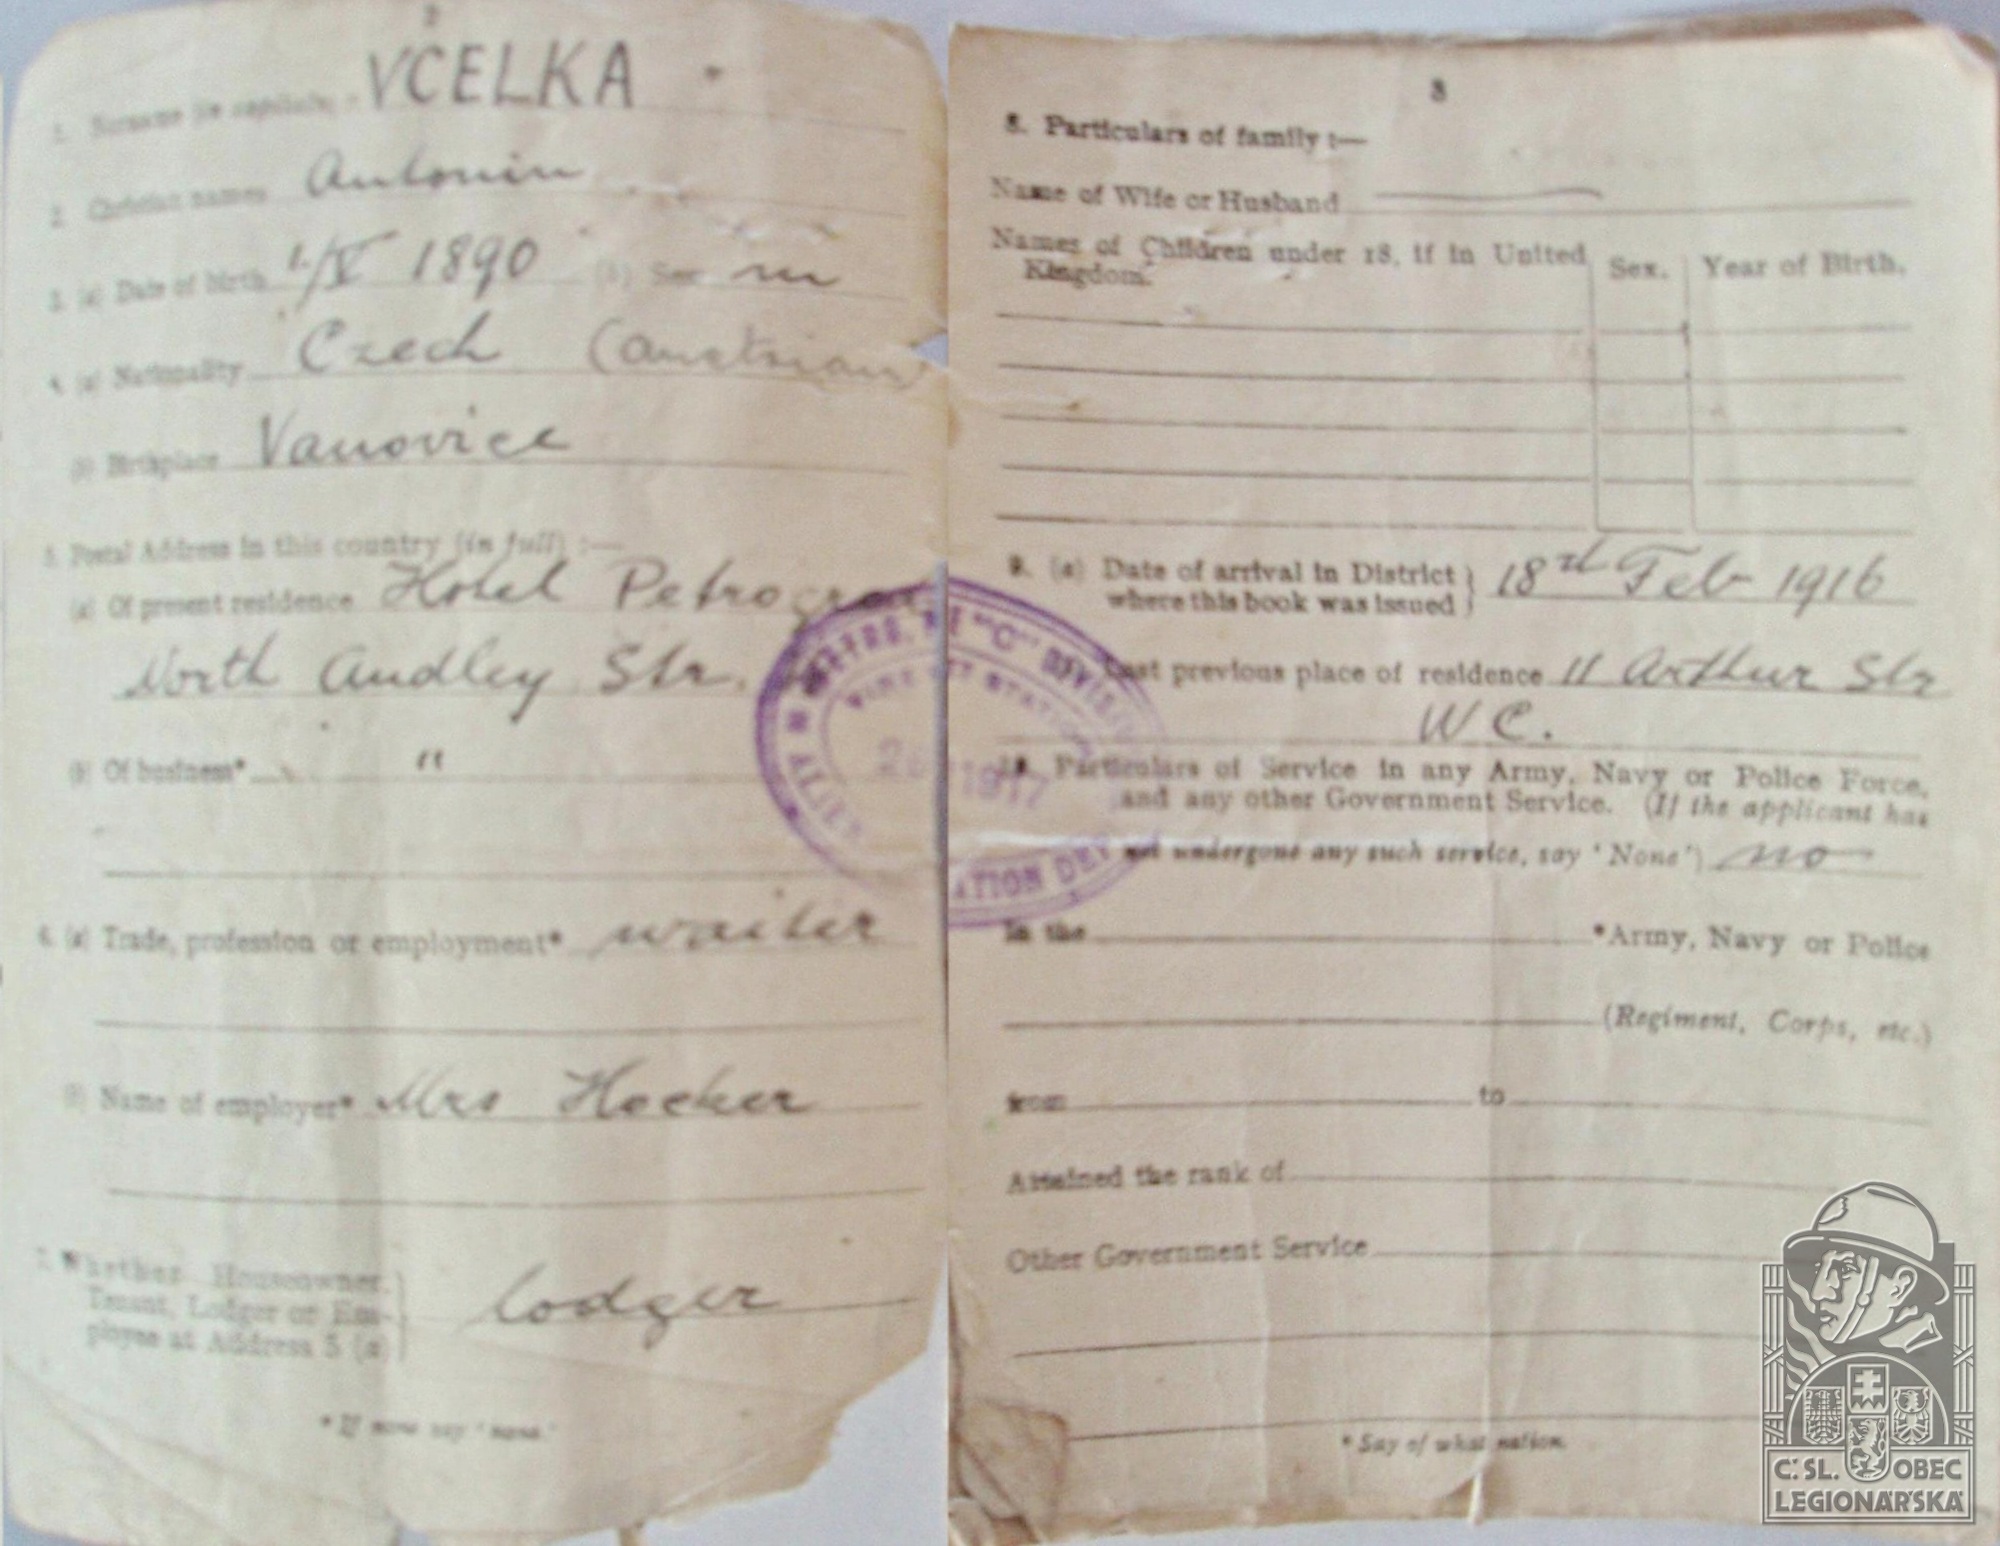 2
1. Surname (in capitals) VČELKA
2. Christian names Antonin
3. (a) Date of birth 1./V 1890 (b) Sex m
4. (a) Nationality Czech (Austrian
(b) Birthplace Vanovice
5. Postal Address in this country (in full) :—
(a) Of present residence Hotel Petrograd
North Audley Str.
(b) Of business* "
6. (a) Trade, profession or employment* waiter
(b) Name of employer* Mrs Hocker
7. Whether Houseowner,
Tenant, Lodger or Em-
ployee at Address 5 (a) } lodger
* If none say 'none.'
3
8. Particulars of family :—
Name of Wife or Husband
Names of Children under 18, if in United
Kingdom.
Sex.
Year of Birth.
9. (a) Date of arrival in District
where this book was issued } 18rd Feb 1916
Last previous place of residence 11 Arthur Str
W C.
10. Particulars of Service in any Army, Navy or Police Force,
and any other Government Service. (If the applicant has
not undergone any such service, say 'None') no
In the *Army, Navy or Police
(Regiment, Corps, etc.)
from to
Attained the rank of
Other Government Service
* Say of what nation.
"C" DIVISION
1917
Č. SL. OBEC
LEGIONÁŘSKÁ